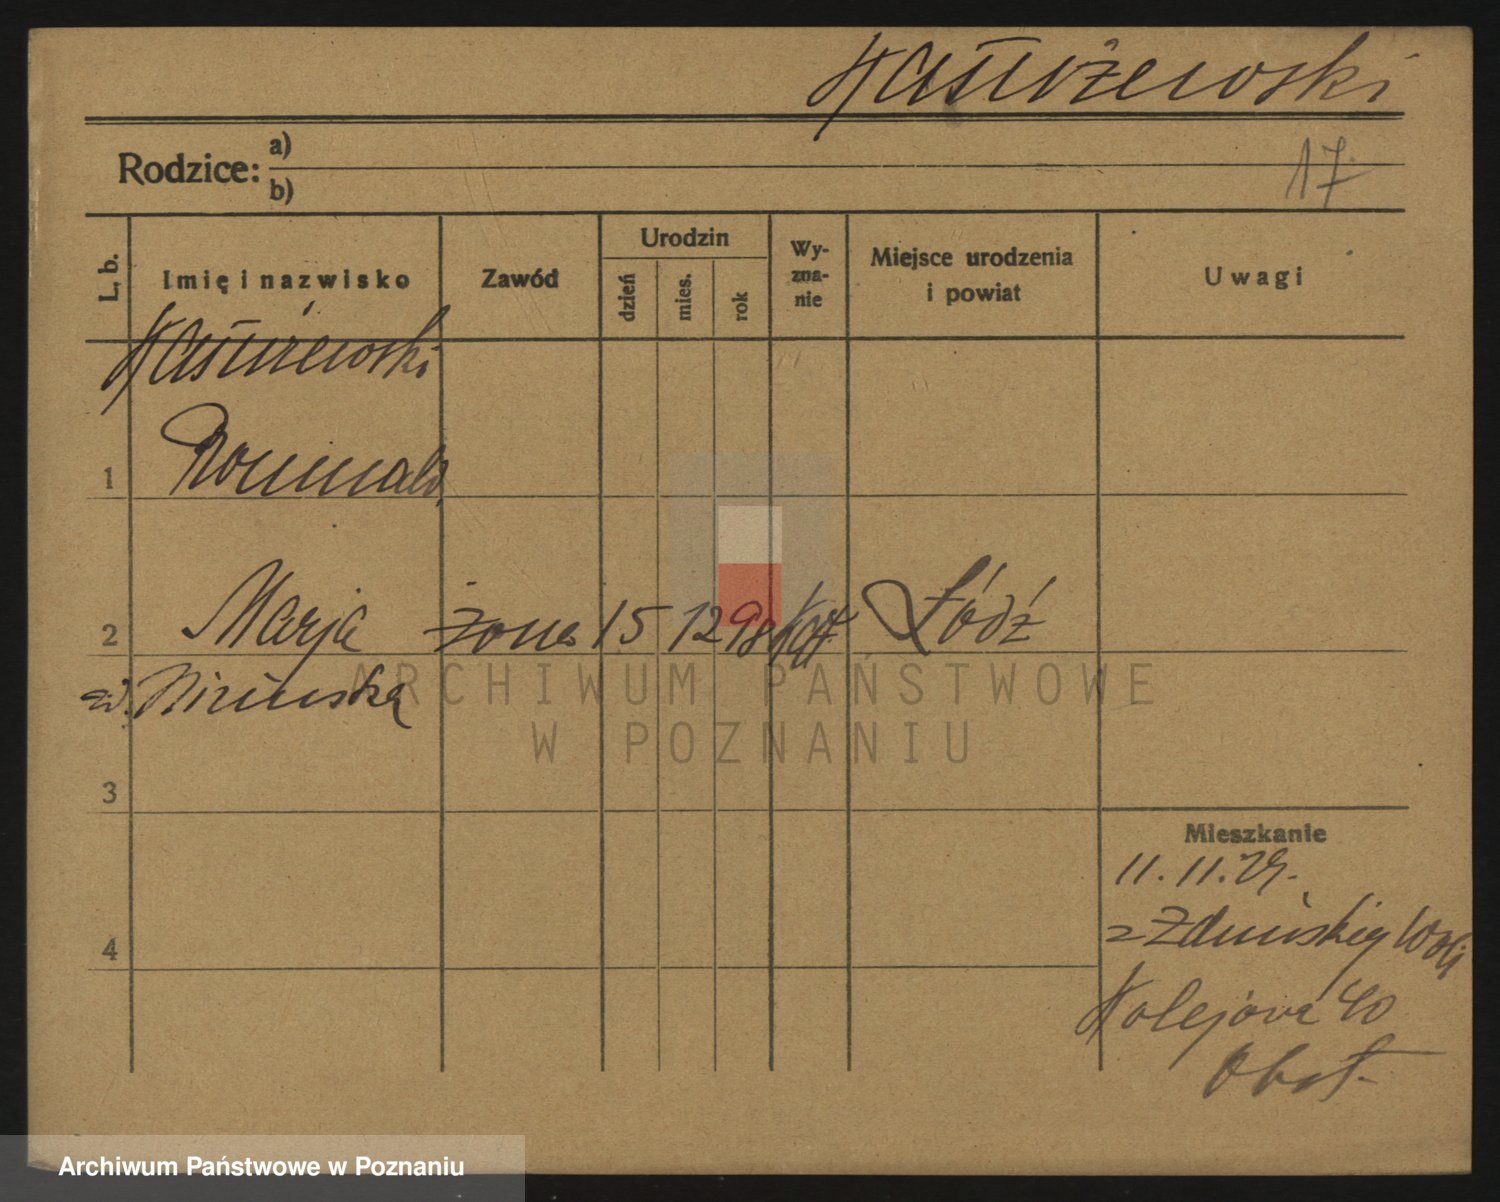 Rodzice: a)
b)
17
L. b.
Imię i nazwisko
Zawód
Urodzin
dzień
mies.
rok
Wy-
zna-
nie
Miejsce urodzenia
i powiat
Uwagi
1
Romuald
2 Marja żona 15 12 98 kat Łódź
3
Mieszkanie
11. 11. 29.
z Zduńskiej Woli
4
Kolejowa 40
ARCHIWUM PAŃSTWOWE
W POZNANIU
Archiwum Państwowe w Poznaniu